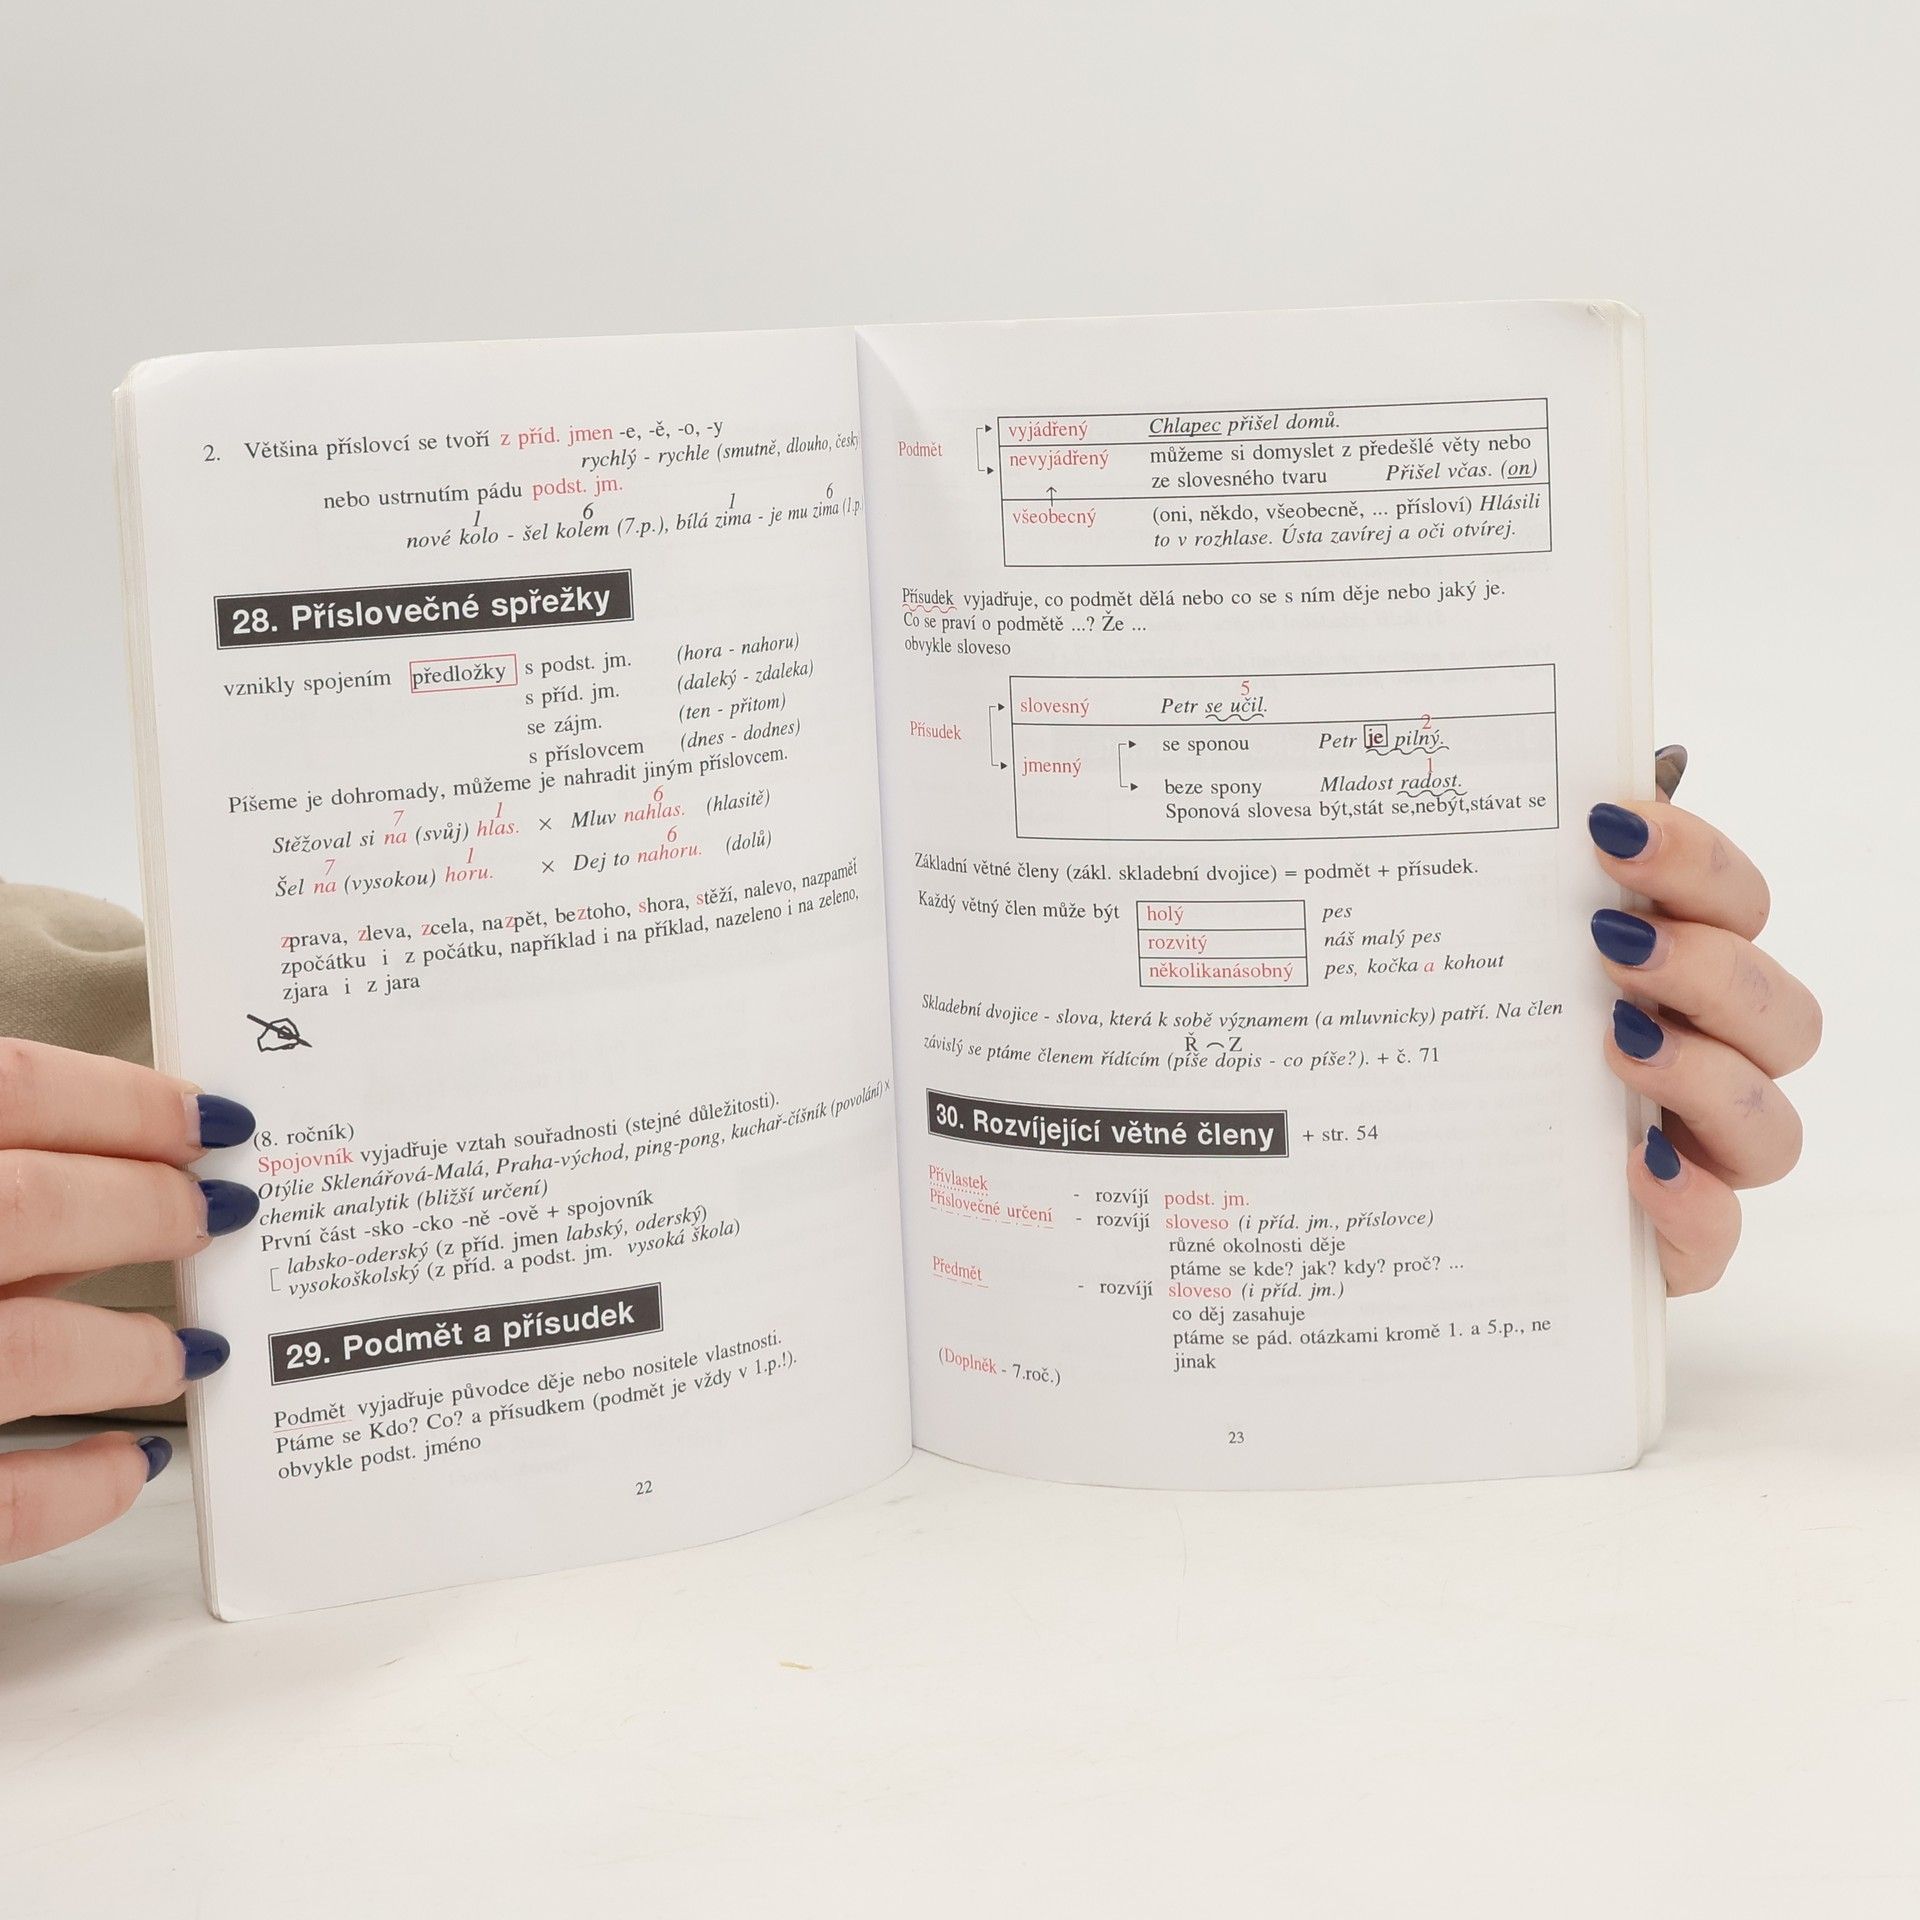 2. Většina příslovcí se tvoří z příd. jmen -e, -ě, -o, -y
rychlý - rychle (smutně, dlouho, česky
nebo ustrnutím pádu podst. jm.
1 6 1 6
nové kolo - šel kolem (7.p.), bílá zima - je mu zima (1.p.
28. Příslovečné spřežky
vznikly spojením předložky s podst. jm. (hora - nahoru)
s příd. jm. (daleký - zdaleka)
se zájm. (ten - přitom)
s příslovcem (dnes - dodnes)
Píšeme je dohromady, můžeme je nahradit jiným příslovcem.
7 1 6
Stěžoval si na (svůj) hlas. × Mluv nahlas. (hlasitě)
7 1 6
Šel na (vysokou) horu. × Dej to nahoru. (dolů)
zprava, zleva, zcela, nazpět, beztoho, shora, stěží, nalevo, nazpaměť
zpočátku i z počátku, například i na příklad, nazeleno i na zeleno,
zjara i z jara
(8. ročník)
Spojovník vyjadřuje vztah souřadnosti (stejné důležitosti).
Otýlie Sklenářová-Malá, Praha-východ, ping-pong, kuchař-číšník (povolání) ×
chemik analytik (bližší určení)
První část -sko -cko -ně -ově + spojovník
labsko-oderský (z příd. jmen labský, oderský)
vysokoškolský (z příd. a podst. jm. vysoká škola)
29. Podmět a přísudek
Podmět vyjadřuje původce děje nebo nositele vlastnosti.
Ptáme se Kdo? Co? a přísudkem (podmět je vždy v 1.p.!).
obvykle podst. jméno
22
Podmět
vyjádřený Chlapec přišel domů.
nevyjádřený můžeme si domyslet z předešlé věty nebo
ze slovesného tvaru Přišel včas. (on)
všeobecný (oni, někdo, všeobecně, ... přísloví) Hlásili
to v rozhlase. Ústa zavírej a oči otvírej.
Přísudek vyjadřuje, co podmět dělá nebo co se s ním děje nebo jaký je.
Co se praví o podmětě ...? Že ...
obvykle sloveso
5
slovesný Petr se učil.
Přísudek
2
se sponou Petr je pilný.
jmenný
1
beze spony Mladost radost.
Sponová slovesa být,stát se,nebýt,stávat se
Základní větné členy (zákl. skladební dvojice) = podmět + přísudek.
Každý větný člen může být holý pes
rozvitý náš malý pes
několikanásobný pes, kočka a kohout
Skladební dvojice - slova, která k sobě významem (a mluvnicky) patří. Na člen
Ř Z
závislý se ptáme členem řídícím (píše dopis - co píše?). + č. 71
30. Rozvíjející větné členy + str. 54
Přívlastek - rozvíjí podst. jm.
Příslovečné určení - rozvíjí sloveso (i příd. jm., příslovce)
různé okolnosti děje
ptáme se kde? jak? kdy? proč? ...
Předmět - rozvíjí sloveso (i příd. jm.)
co děj zasahuje
ptáme se pád. otázkami kromě 1. a 5.p., ne
jinak
(Doplněk - 7.roč.)
23